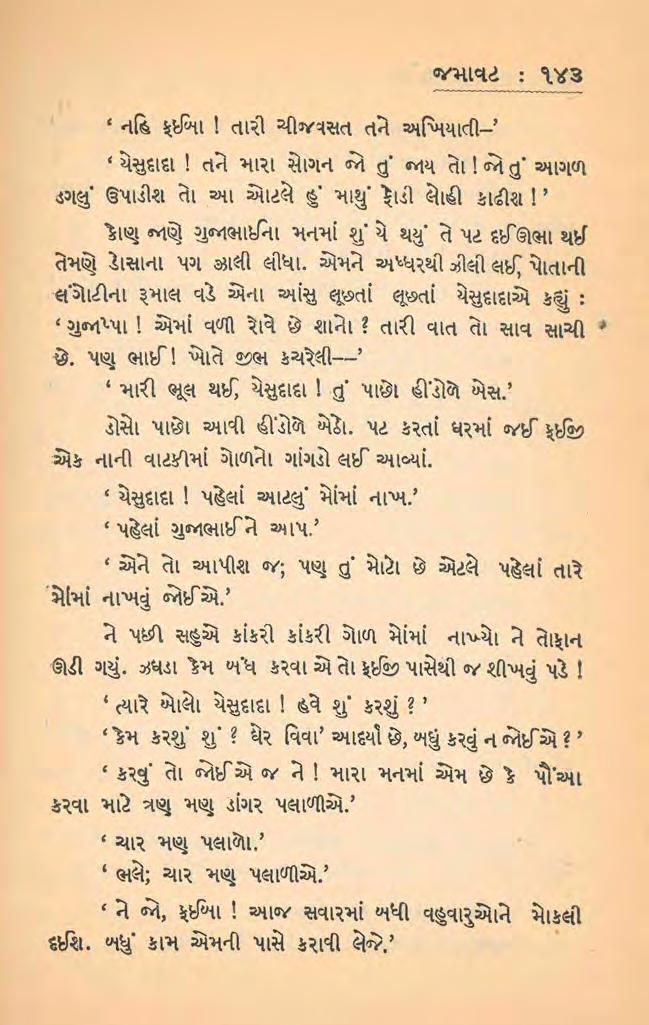 જમાવટ : ૧૪૩
‘ નહિ ફઈબા ! તારી ચીજવસત તને અખિયાતી–’
‘ યેસુદાદા ! તને મારા સોગન જો તું જાય તો ! જો તું આગળ
ડગલું ઉપાડીશ તો આ ઓટલે હું માથું ફોડી લોહી કાઢીશ ! ’
કોણ જાણે ગુજાભાઈના મનમાં શું યે થયું તે પટ દઈ ઊભા થઈ
તેમણે ડોસાના પગ ઝાલી લીધા. એમને અધ્ધરથી ઝીલી લઈ, પોતાની
લંગોટીના રૂમાલ વડે એના આંસુ લૂછતાં લૂછતાં યેસુદાદાએ કહ્યું :
‘ ગુજાપ્પા ! એમાં વળી રોવે છે શાનો ? તારી વાત તો સાવ સાચી
છે. પણ ભાઈ ! ખોતે જીભ કચરેલી––’
‘ મારી ભૂલ થઈ, યેસુદાદા ! તું પાછો હીંડોળે બેસ.’
ડોસો પાછો આવી હીંડોળે બેઠો. પટ કરતાં ઘરમાં જઈ ફઈજી
એક નાની વાટકીમાં ગોળનો ગાંગડો લઈ આવ્યાં.
‘ યેસુદાદા ! પહેલાં આટલું મોંમાં નાખ.’
‘ પહેલાં ગુજાભાઈને આપ.’
‘ એને તો આપીશ જ; પણ તું મોટો છે એટલે પહેલાં તારે
મોંમાં નાખવું જોઈએ.’
ને પછી સહુએ કાંકરી કાંકરી ગોળ મોંમાં નાખ્યો ને તોફાન
ઊડી ગયું. ઝઘડા કેમ બંધ કરવા એ તો ફઈજી પાસેથી જ શીખવું પડે !
‘ ત્યારે બોલો યેસુદાદા ! હવે શું કરશું ? ’
‘ કેમ કરશું શું ? ઘેર વિવા’ આદર્યાં છે, બધું કરવું ન જોઈએ ? ’
‘ કરવું તો જોઈએ જ ને ! મારા મનમાં એમ છે કે પૌંઆ
કરવા માટે ત્રણ મણ ડાંગર પલાળીએ.’
‘ ચાર મણ પલાળો.’
‘ ભલે; ચાર મણ પલાળીએ.’
‘ ને જો, ફઈબા ! આજ સવારમાં બધી વહુવારુઓને મોકલી
દઈશ. બધું કામ એમની પાસે કરાવી લેજે.’